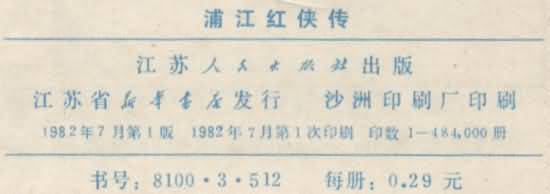 浦江红侠传
江苏人民出版社出版
江苏省新华书店发行 沙洲印刷厂印刷
1982年7月第1版 1982年7月第1次印刷 印数 1—484,000 册
书号：8100·3·512 每册：0.29 元